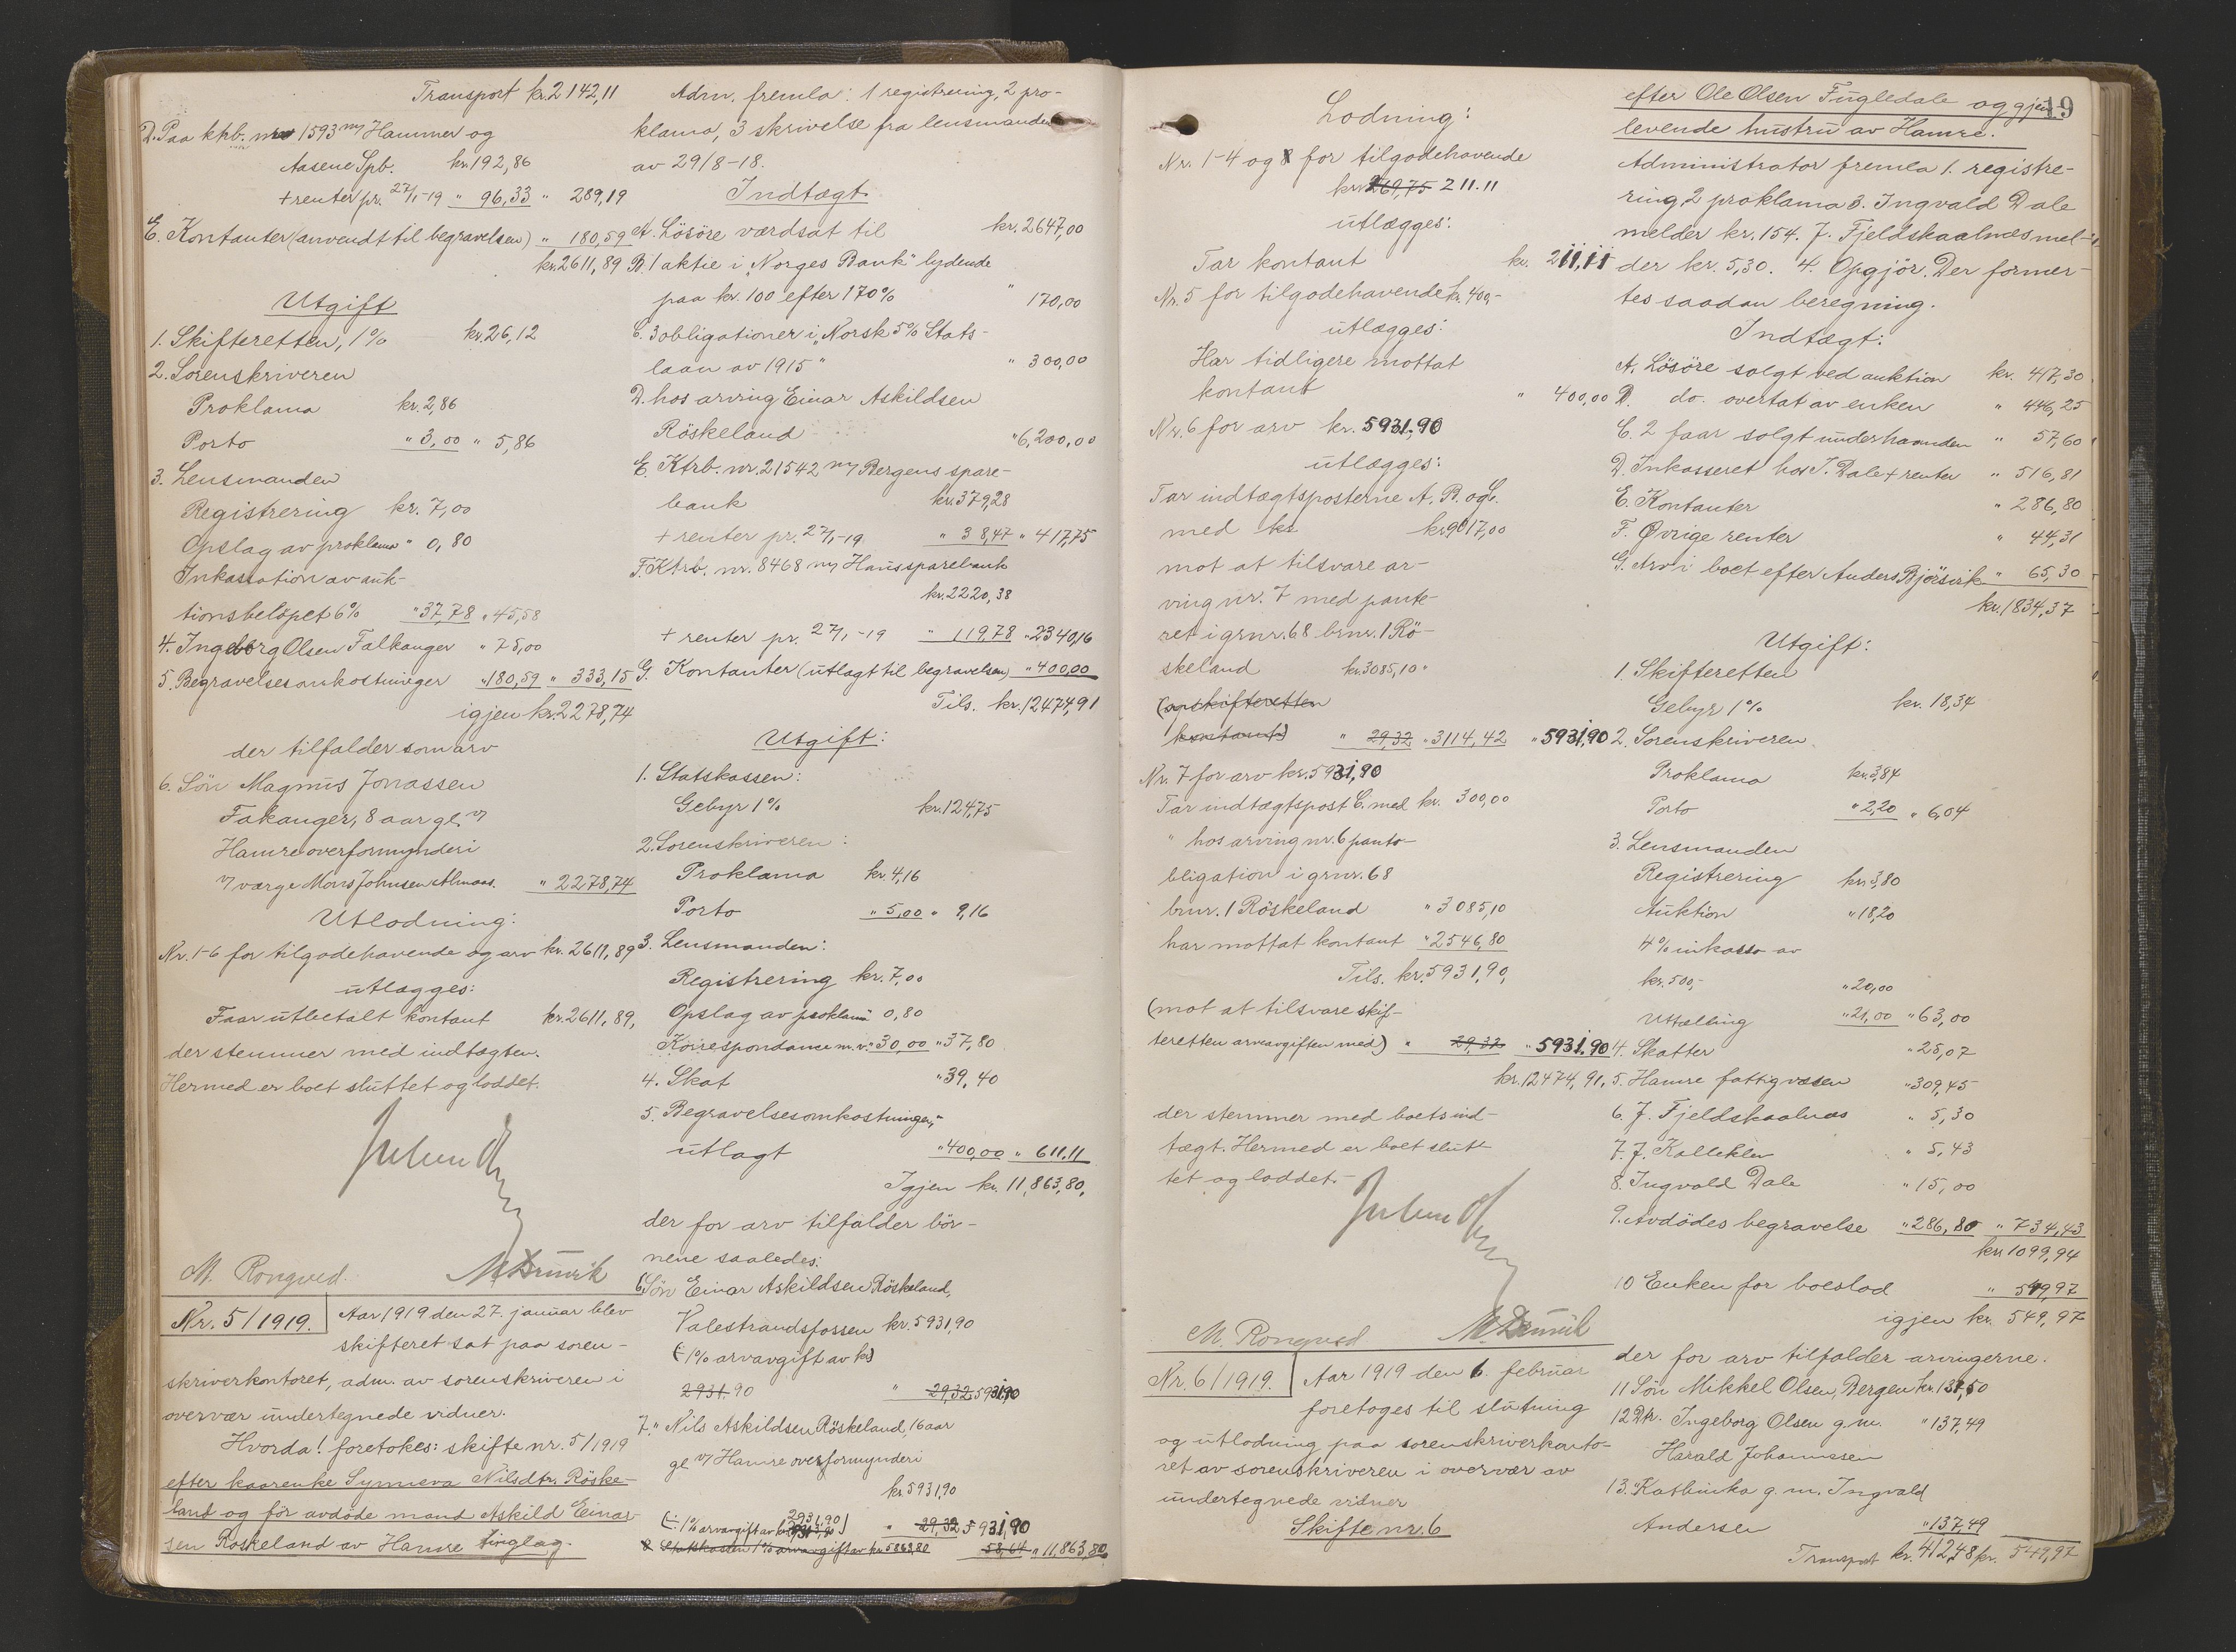 Transport kr. 2142,11
D. Paa ktrb. nr 1593 m/ Hammer og
Aasene Spb. kr. 192,86
+ renter pr. 27/1-19 " 96,33 " 289,19
E. Kontanter (anvendt til begravelsen) " 180,59
kr. 2611,89
Utgift
1. Skifteretten, 1% kr. 26,12
2. Sorenskriveren
Proklama kr. 2,86
Porto " 3,00 " 5,86
3. Lensmanden
Registrering kr. 7,00
Opslag av proklama " 0,80
Inkassation av auk-
tionsbeløpet 6% " 37,78 " 45,58
4. Ingeborg Olsen Falkanger " 75,00
5. Begravelsesomkostninger " 180,59 " 333,15
igjen kr. 2278,74
der tilfalder som arv
6. Søn Magnus Jonassen
Fakanger, 8 aar gl. v/
Hamre overformynderi
v/ værge Mons Johnsen Almaas. " 2278,74
Utlodning:
Nr. 1-6 for tilgodehavende og arv kr. 2611,89
utlægges:
Faar utbetalt kontant kr. 2611,89,
der stemmer med indtægten.
Hermed er boet sluttet og loddet.
M. Rongved.
Nr. 5/1919. Aar 1919 den 27. januar blev
skifteret sat paa soren-
skriverkontoret, adm. av sorenskriveren i
overvær undertegnede vidner.
Hvorda! foretokes: skifte nr. 5/1919
efter kaarenke Synneva Nilsdtr. Røske-
land og før avdøde mand Askild Einar-
sen Røskeland av Hamre tinglag.
Adm. fremla: 1 registrering, 2 pro-
klama, 3 skrivelse fra lensmanden
av 29/8-18.
Indtægt
A. Løsøre værdsat til kr. 2647,00
B. 1 aktie i "Norges Bank" lydende
paa kr. 100 efter 170% " 170,00
C. 3 obligationer i "Norsk 5% Stats-
laan av 1915" " 300,00
D. hos arving Einar Askildsen
Röskeland " 6,200,00
E. Ktrb. nr. 21542 m/ Bergens spare-
bank kr. 379,28
+ renter pr. 27/1-19 " 38,47 " 417,75
F. Ktrb. nr. 8468 m/ Haus sparebank
kr. 2220,38
+ renter pr. 27/1-19 " 119,78 " 2340,16
G. Kontanter (utlagt til begravelsen) " 400,00
Tils. kr. 12474,91
Utgift:
1. Statskassen:
Gebyr 1% kr. 124,75
2. Sorenskriveren:
Proklama kr. 4,16
Porto " 5,00 " 9,16
3. Lensmanden:
Registrering kr. 7,00
Opslag av proklama " 0,80
Korrespondance m.v. " 30,00 " 37,80
4. Skat " 39,40
5. Begravelsesomkostninger,
utlagt " 400,00 " 611.11
Igjen kr. 11,863,80,
der for arv tilfalder bör-
nene saaledes:
6. Søn Einar Askildsen Röskeland,
Valestrandsfossen kr. 5931,90
(÷ 1% arvavgift av kr
2931.90 " 29,32 5931,90
7. " Nils Askildsen Röskeland, 16 aar
gl. v/ Hamre overformynderi
kr. 5931,90
2931,90
(÷ 1% arvavgift av kr.) " 29,32 5931,90
8 Statskassen 1% arvavgift av kr 5863,80 58,64 " 11,863,80
Lodning:
Nr. 1-4 og 8 for tilgodehavende
kr. 269,75 211.11
utlægges:
Tar kontant kr. 211,11
Nr. 5 for tilgodehavende kr. 400,-
utlægges:
Har tidligere mottat
kontant " 400,00
Nr. 6 for arv kr. 5931,90
utlægges:
Tar indtægtsposterne A. B. og D.
med kr kr. 9017,00
mot at tilsvare ar-
ving nr. 7 med pante-
ret i grnr. 68 brnr. 1 Rö-
skeland kr. 3085,10 "
(og skifteretten
kontant) " 29,32 " 3114,42 " 5931,90
Nr. 7 for arv kr. 5931,90
Tar indtægtspost C. med kr. 300,00
" hos arving nr. 6 panto-
bligation i grnr. 68
brnr. 1 Röskeland " 3085,10
har mottat kontant " 2546,80
Tils. kr. 5931,90,
(mot at tilsvare skif-
teretten arveavgiften med) " 29,32 " 5931.90
kr. 12474,91,
der stemmer med boets ind-
tægt. Hermed er boet slut-
tet og loddet.-
M. Rongved
Nr. 6/1919. Aar 1919 den 6. februar
foretoges til slutning
og utlodning paa sorenskriverkonto-
ret av sorenskriveren i overvær av
undertegnede vidner
Skifte nr. 6
49
efter Ole Olsen Fugledale og gjen-
levende hustru av Hamre.
Administrator fremla 1. registre-
ring, 2 proklama 3. Ingvald Dale
melder kr. 154. J. Fjeldskaalnes mel-
der kr. 5,30. 4. Opgjör. Der former-
tes saadan beregning.
Indtægt:
A. Lösöre solgt ved auktion kr. 417,30
B. do. overtat av enken " 446,25
C. 2 faar solgt underhaanden " 57,60
D. Inkasseret hos I. Dale + renter " 516,81
E. Kontanter " 286,80
F. Øvrige renter " 44,31
G. Arv i boet efter Anders Bjørsvik " 65,30
kr. 1834,37
Utgift:
1. Skifteretten
Gebyr 1% kr. 18,34
2. Sorenskriveren
Proklama kr. 3,84
Porto " 2,20 " 6,04
3. Lensmanden
Registrering kr. 3,80
Auktion " 18,20
4% inkasso av
kr. 500,- " 20,00
Uttælling " 21,00 " 63,00
4. Skatter " 25,07
5. Hamre fattigvæsen " 309,45
6. J. Fjeldskaalnes " 5,30
7. J. Kalleklev " 5,43
8. Ingvald Dale " 15,00
9. Avdödes begravelse " 286,80 " 734,43
kr. 1099,94
10 Enken for boeslod " 549,97
igjen kr. 549,97
der for arv tilfalder arvingerne.
11 Søn Mikkel Olsen, Bergen kr. 137,50
12 Dtr. Ingeborg Olsen g.m. " 137,49
Harald Johannesen
13. " Kathinka g.m. Ingvald
Andersen " 137,49
Transport kr. 412,48 kr. 549,97